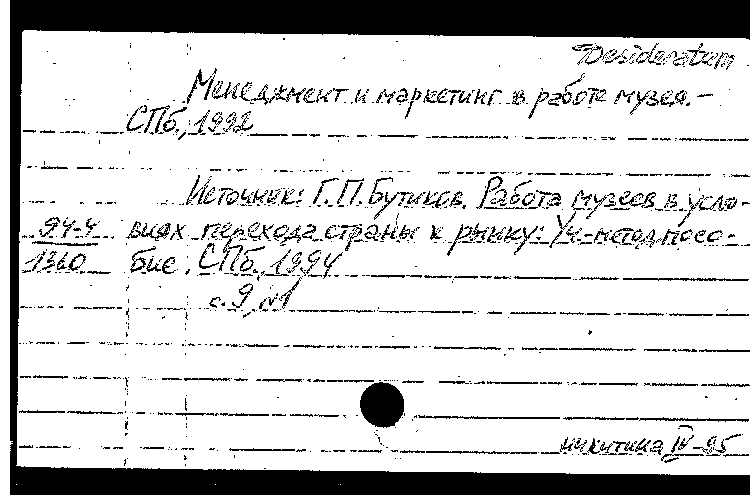 Desideratum
Менеджмент и маркетинг в работе музея. –
СПб., 1992
Источник: Г.П. Бутиков. Работа музеев в усло-
94-4 виях перехода страны к рынку: Уч.-метод. посо-
1360 бие. СПб., 1994
с. 9, №1
никитина IV-95